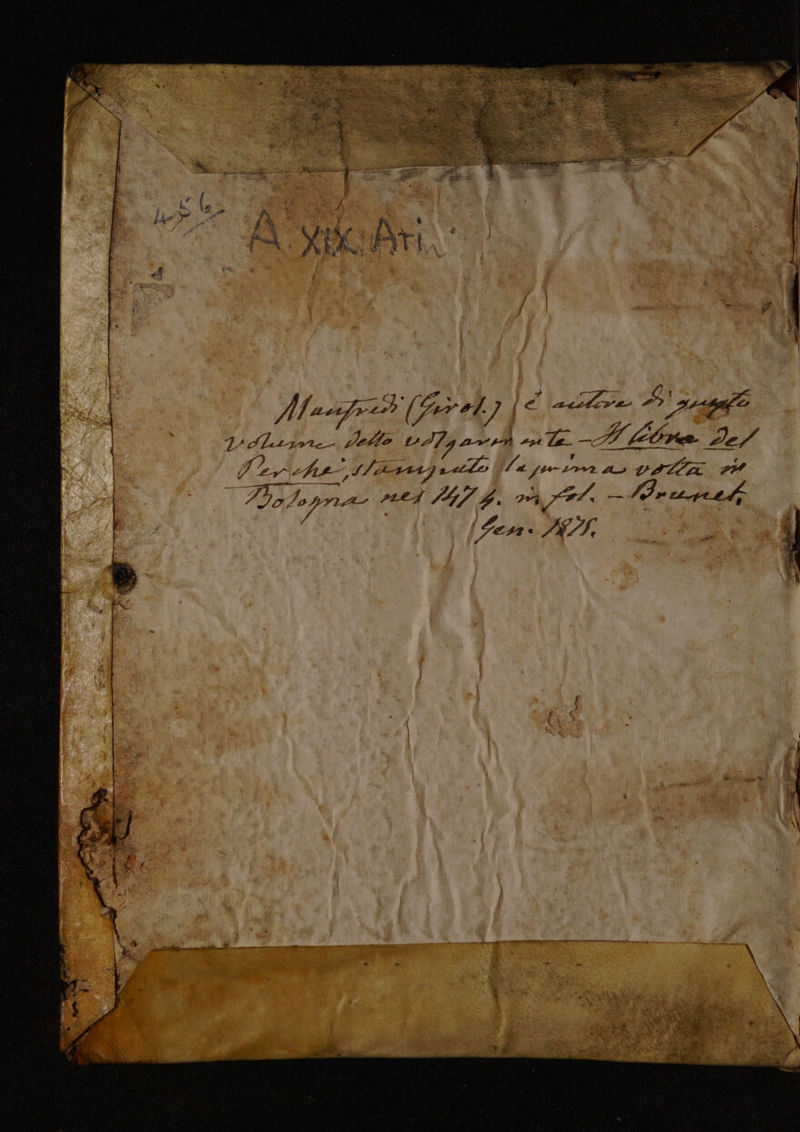 456
A. XIX. Ari.
Manfredi (Girol.) è autore di questo
volume detto volgarmente – Il libro del
Perchè, stampato la prima volta in
Bologna nel 1474. in fol. – Brunet,
Gen.